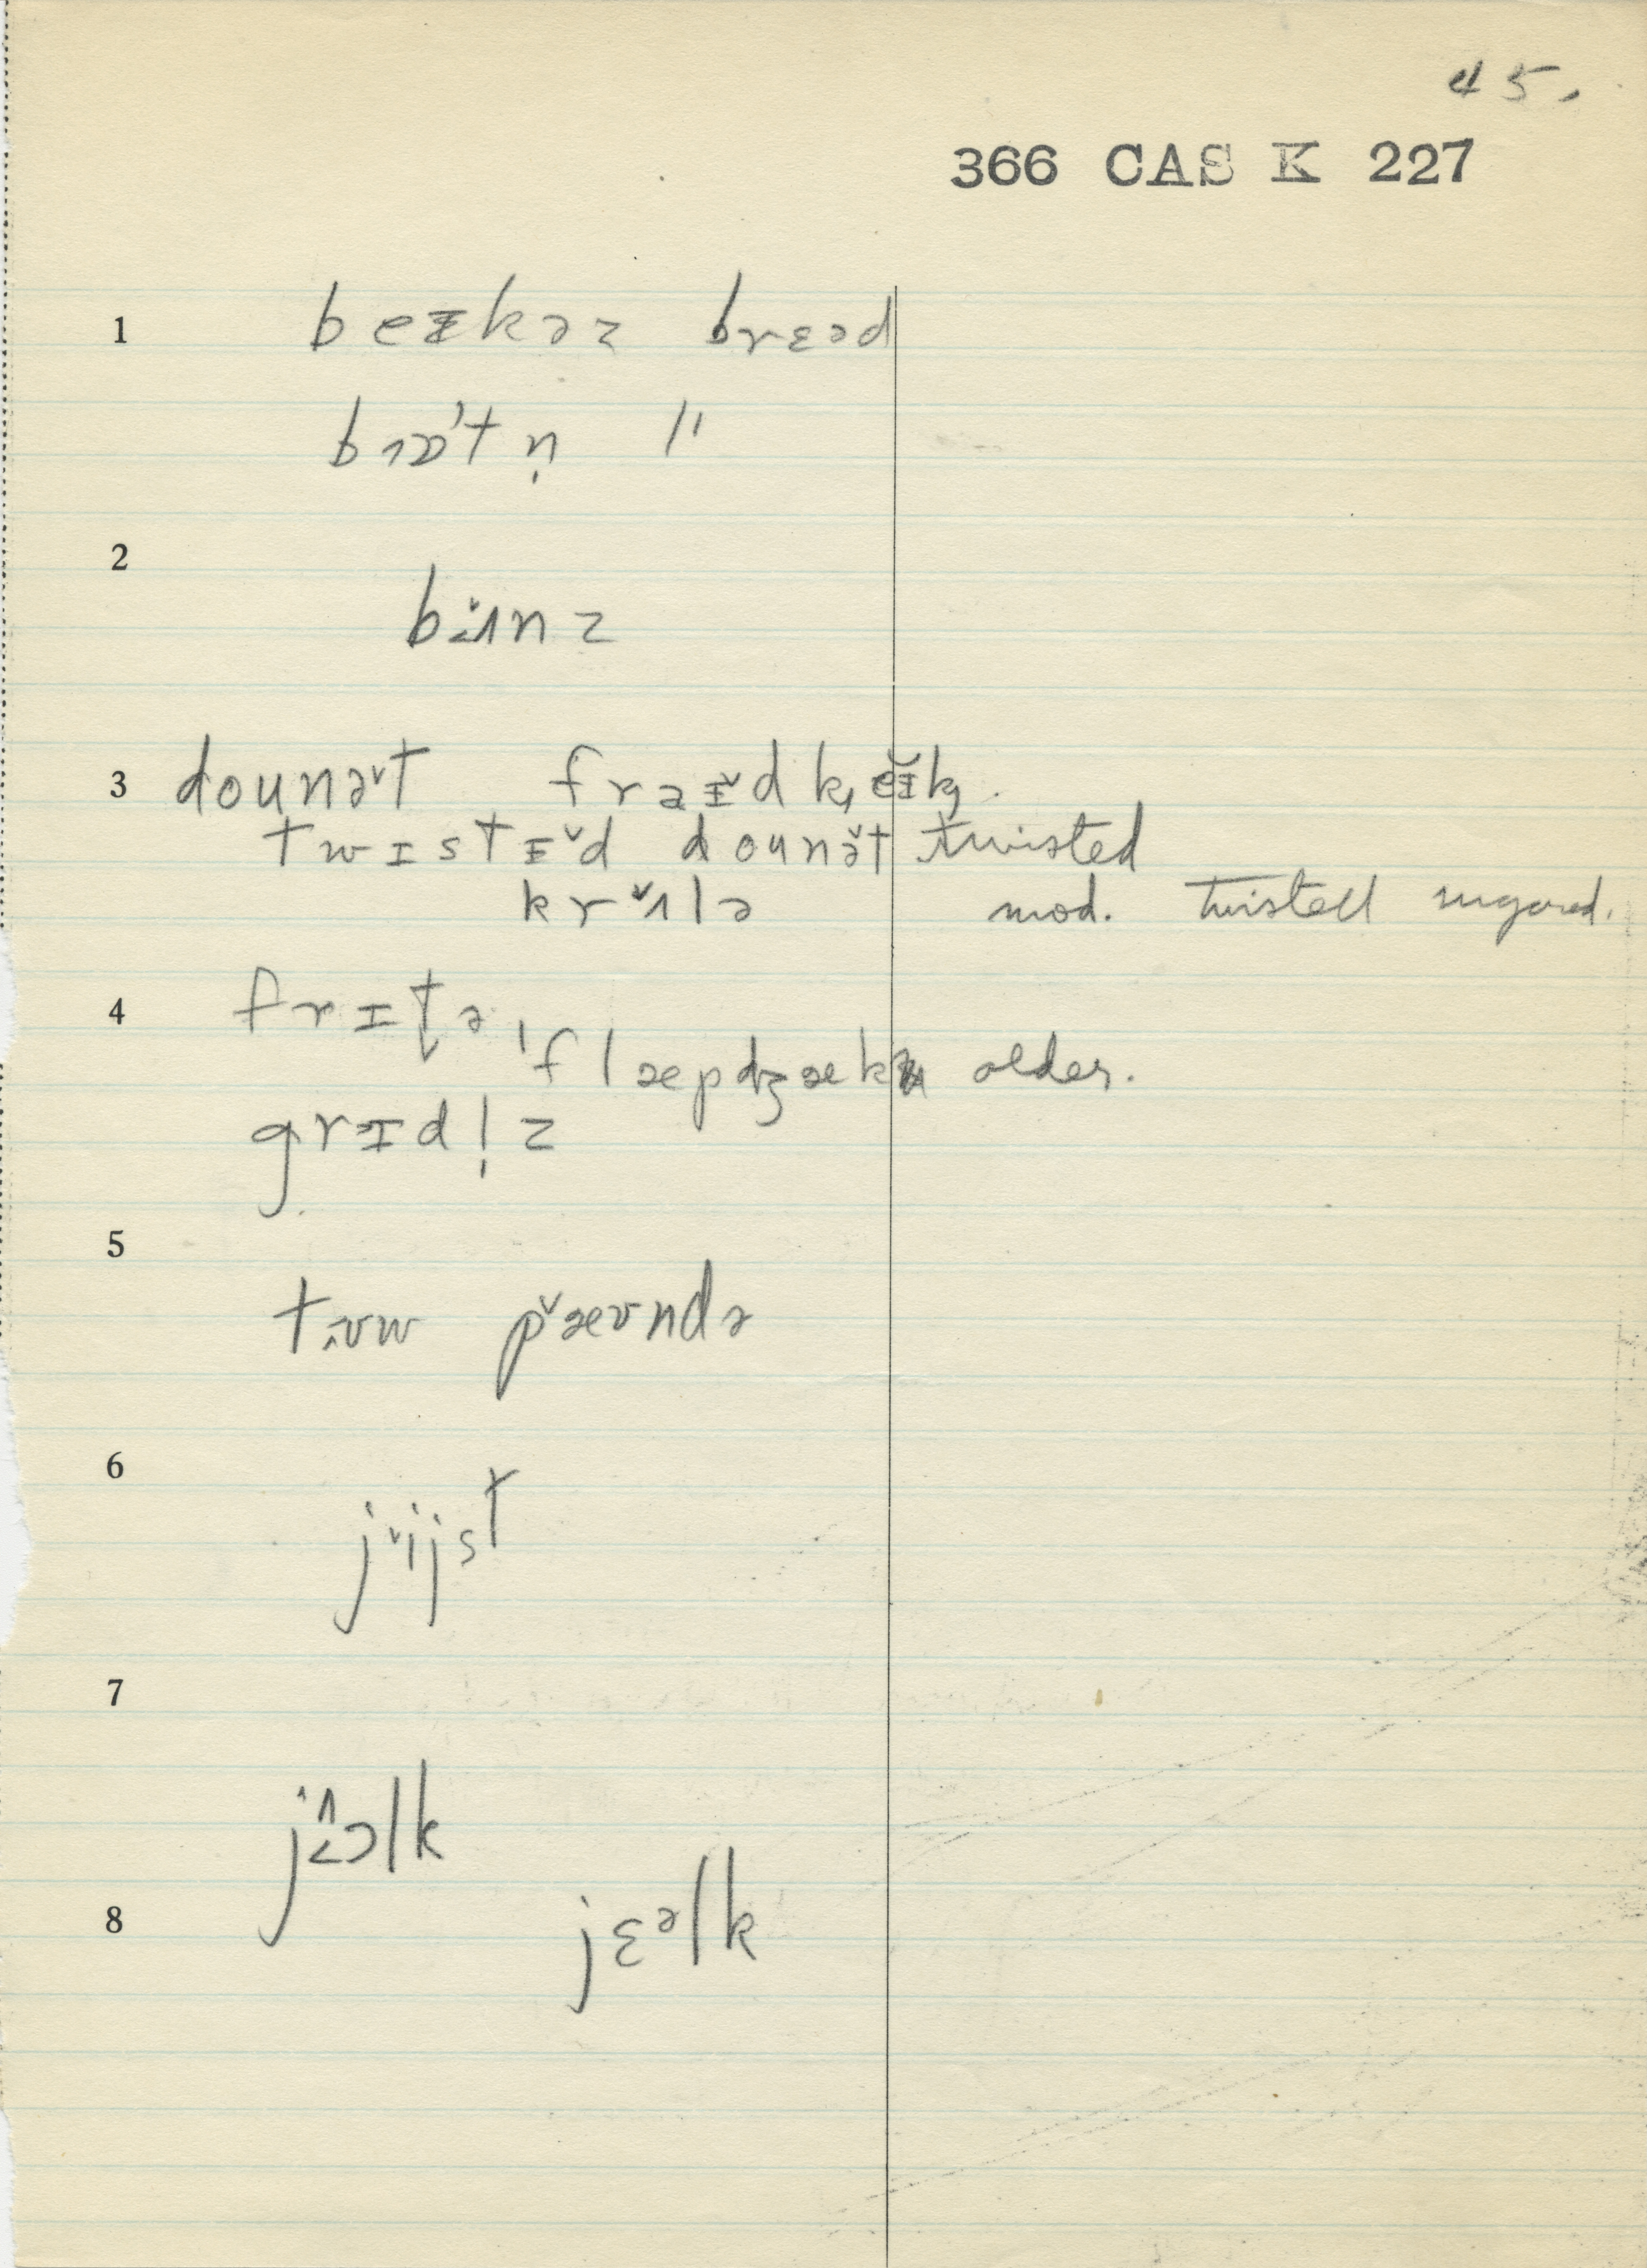 45.
366 CAS K 227
1 beɪkəz brɛəd
brɒʼtn̩ "
2
bɨ̞̆ʌnz
3 dounə̆t fraɪ̆d k̟eɪ̆k̟
twɪstɪ̆d dounə̆t twisted
krʌ̆lə mod. twisted sugared.
4 frɪt̬ə
ˈflæpdʒæk older.
grɪdl̩z
5
tʊw pæ̆ʊndə
6
jĭjst
7
jɔlk
8 jɛᵊlk